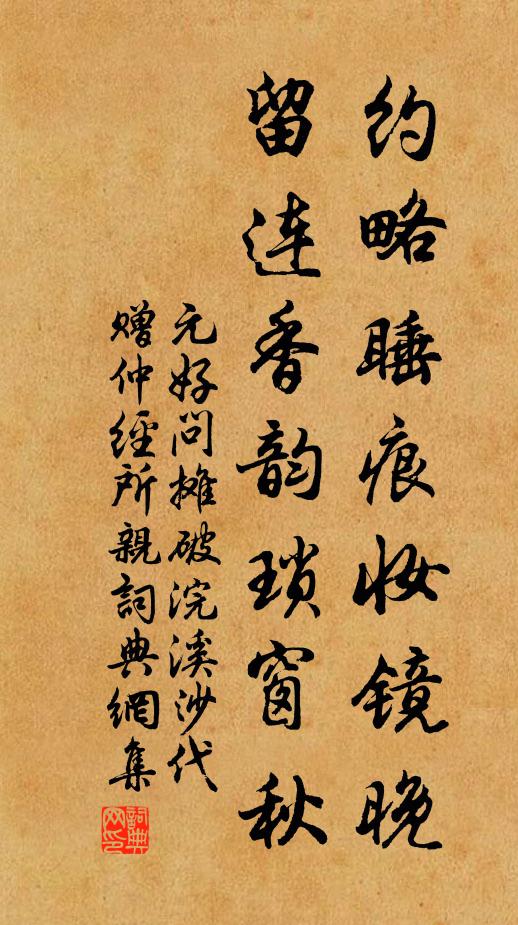 约略睡痕妆镜晚
留连香韵琐窗秋
元好问摊破浣溪沙代
赠仲经所親詞典網集
詞典网印